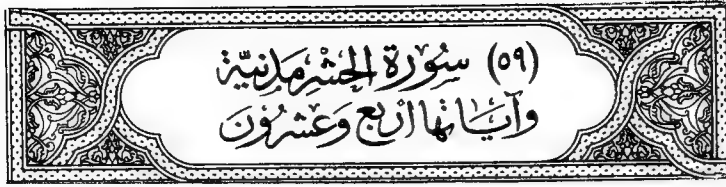 (٥٩) سُوْرَة الحَشْرِ مَدَنِيَّة
وَآيَاتُهَا أَرْبَع وَعِشْرُوْنَ